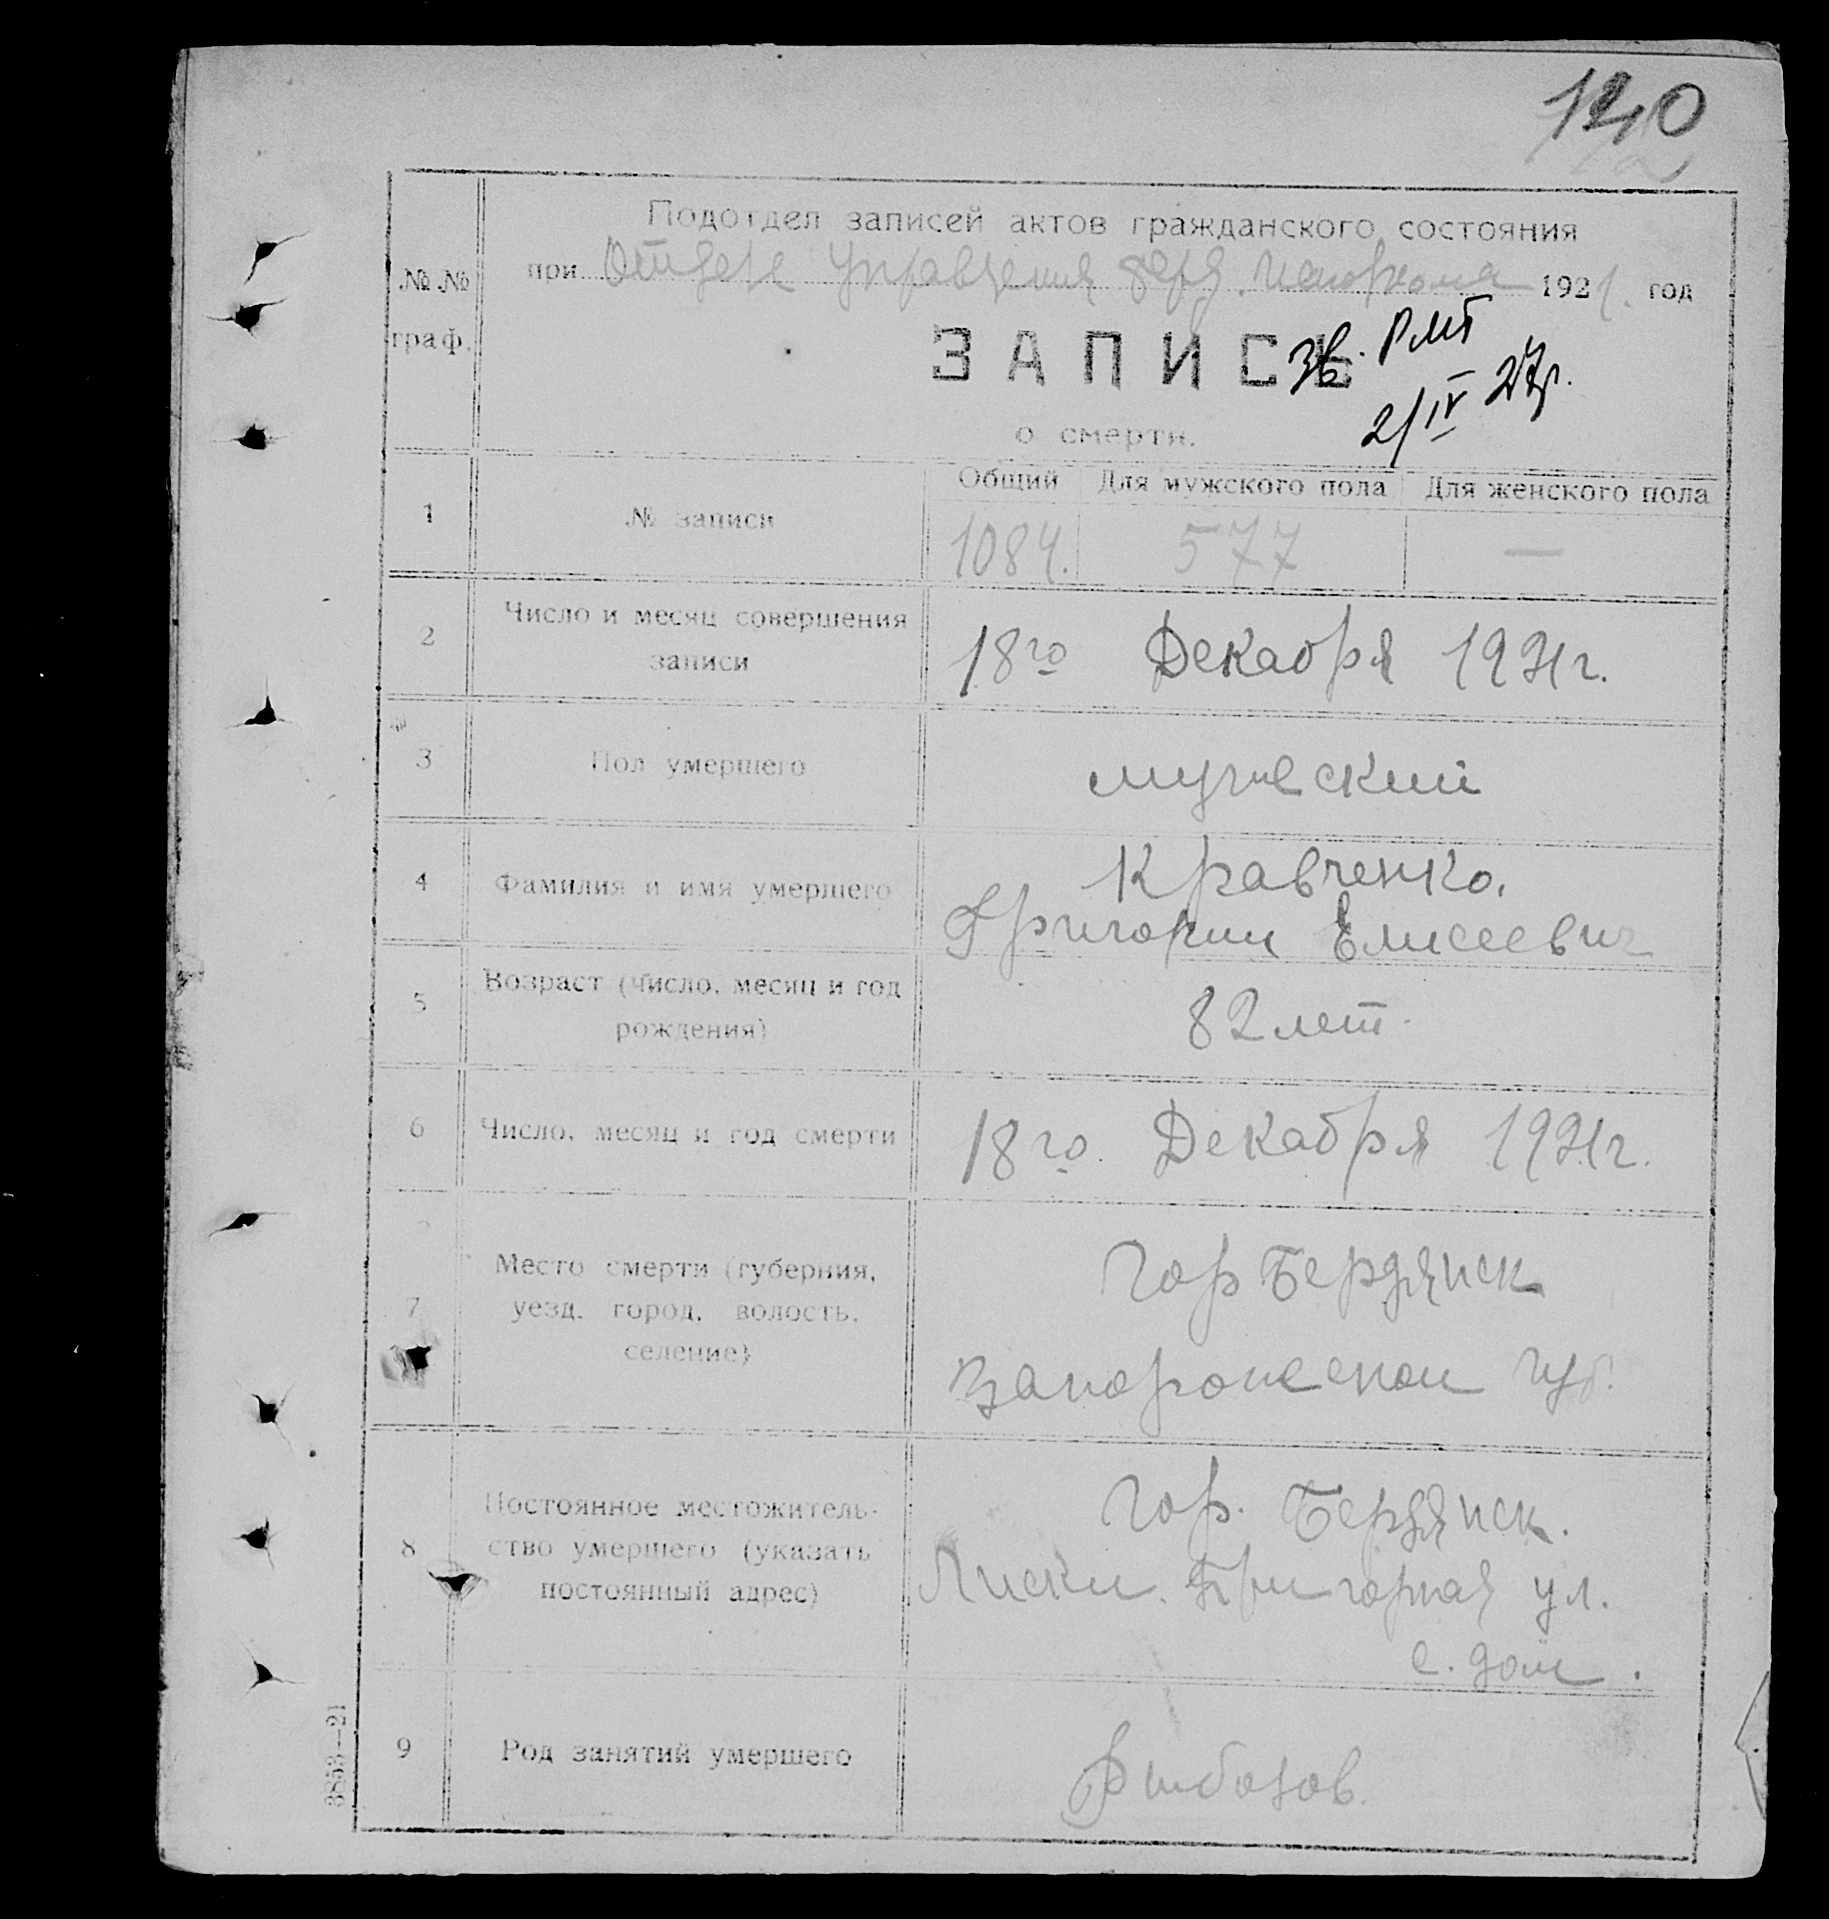 140
Подотдел записей актов гражданского состояния
при Отделе Управления Берд. исполкома 1921. год
№ №
граф.
ЗАПИСЬ
2/IV 27г.
о смерти.
Общий Для мужского пола Для женского пола
1 № записи 1084. 577 —
2 Число и месяц совершения
записи
18го Декабря 1921г.
3 Пол умершего мужеский
4 Фамилия и имя умершего
Кравченко.
Григории Елисеевич
5 Возраст (число, месяц и год
рождения)
82 лет.
6 Число, месяц и год смерти 18го. Декабря 1921г.
7 Место смерти (губерния,
уезд, город, волость,
селение)
Гор Бердянск
Запорожской Губ.
8 Постоянное местожитель-
ство умершего (указать
постоянный адрес)
Гор. Бердянск.
Лиски. Пригорная ул.
с. дом.
9 Род занятий умершего
3853—21